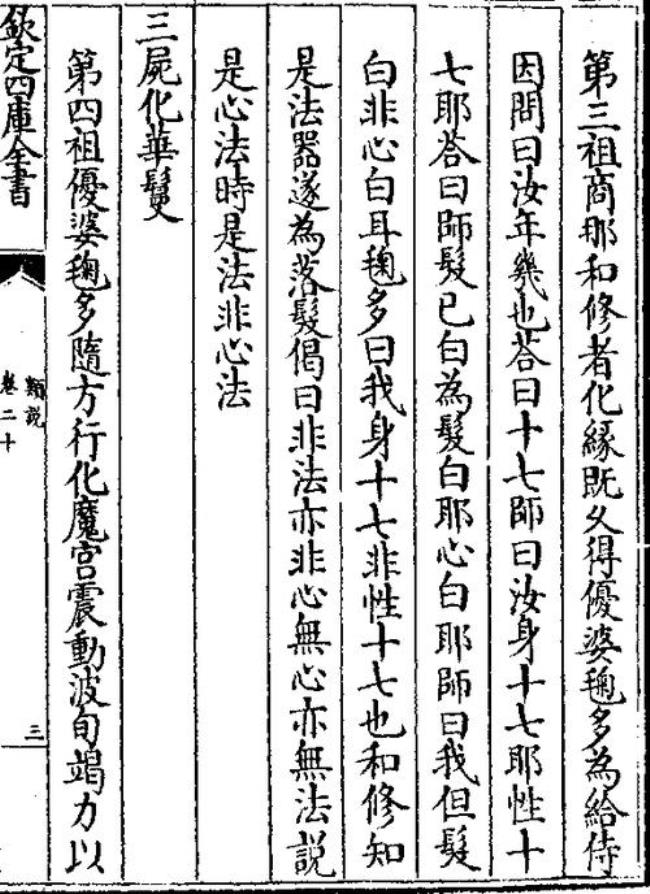 第三祖商那和修者化縁既久得優婆毱多為給侍
因問曰汝年幾也荅曰十七師曰汝身十七耶性十
七耶荅曰師髮已白為髮白耶心白耶師曰我但髮
白非心白耳毱多曰我身十七非性十七也和修知
是法器遂為落髮偈曰非法亦非心無心亦無法説
是心法時是法非心法
三屍化華鬘
第四祖優婆毱多隨方行化魔宫震動波旬竭力以
欽定四庫全書
類説
卷二十
三